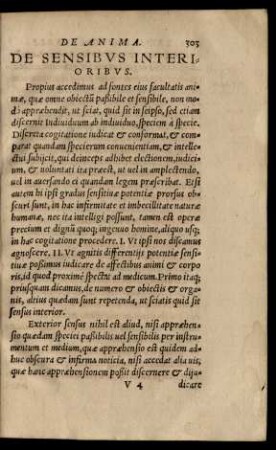 DE ANIMA. 303
DE SENSIBVS INTERI
ORIBVS.
Propius accedimus ad fontes eius facultatis ani
mæ, quæ omne obiectũ passibile et sensibile, non mo
dò appræhendit, ut sciat, quid sit in seipso, sed etiam
discernit Indiuiduum ab indiuiduo, speciem à specie.
Discreta cogitatione iudicat & conformat, & com
parat quandam specierum conuenientiam, & intelle
ctui subijcit, qui deinceps adhibet electionem, iudici
um, & uoluntati ita præest, ut uel in amplectendo,
uel in auersando ei quandam legem præscribat. Etsi
autem hi ipsi gradus sensitiuæ potentiæ prorsus ob
scuri sunt, in hac infirmitate et imbecillitate naturæ
humanæ, nec ita intelligi possunt, tamen est operæ
precium et dignũ quoq; ingenuo homine, aliquo usq;
in hac cogitatione procedere. I. VI ipsi nos discamus
agnoscere. II. VI agnitis differentijs potentiæ sensi
tiuæ possimus iudicare de affectibus animi & corpo
ris, id quod proximè spectat ad medicum. Primo itaq;
priusquam dicamus, de numero & obiectis & orga
nis, altius quædam sunt repetenda, ut sciatis quid sit
sensus interior.
Exterior sensus nihil est aliud, nisi appræhen
sio quædam speciei passibilis uel sensibilis per instru
mentum et medium, quæ appræhensio est quidem ad
huc obscura & infirma noticia, nisi accedat alia uis,
quæ hanc appræhensionem possit discernere & diju
V 4 dicare